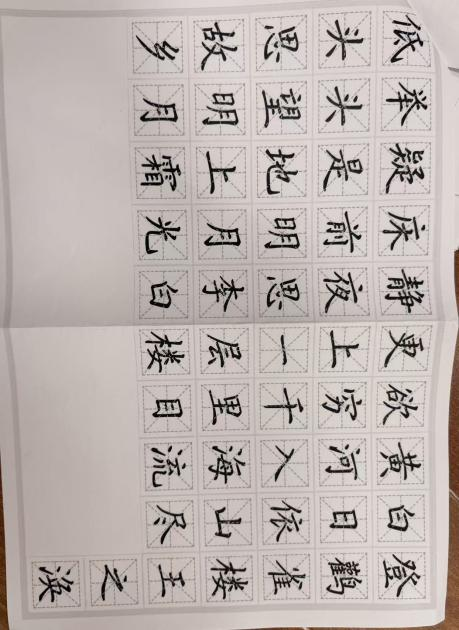 登鹳雀楼王之涣
白日依山尽
黄河入海流
欲穷千里目
更上一层楼
静夜思李白
床前明月光
疑是地上霜
举头望明月
低头思故乡